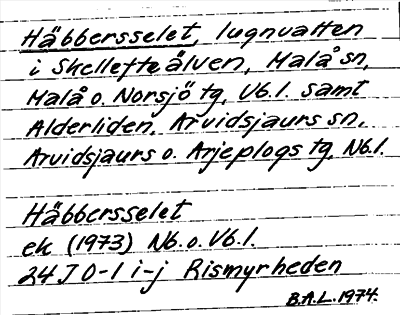 Häbbersselet, lugnvatten
i Skellefteälven, Malå sn,
Malå o. Norsjö tg, Vb.l. samt
Alderliden, Arvidsjaurs sn,
Arvidsjaurs o. Arjeplogs tg, Nb.l.
Häbbersselet
ek (1973) Nb. o. Vb.l.
24 J 0-1 i-j Rismyrheden
B.A.L. 1974.